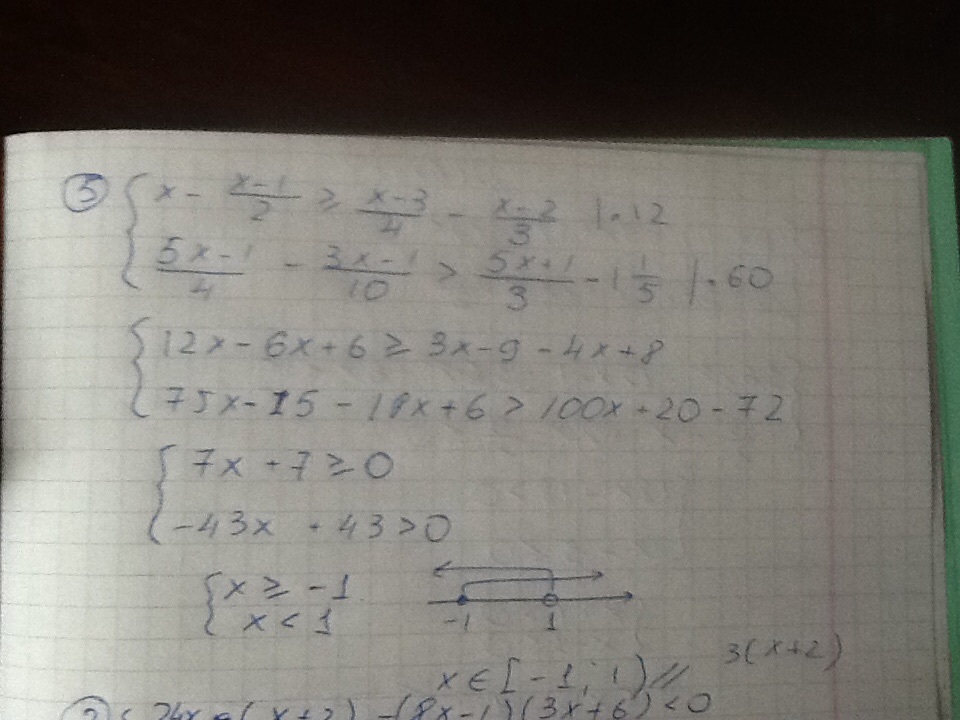 5) { x - (x-1)/2 ≥ (x-3)/4 - (x-2)/3 | · 12
(5x-1)/4 - (3x-1)/10 > (5x+1)/3 - 1 1/5 | · 60
{ 12x - 6x + 6 ≥ 3x - 9 - 4x + 8
75x - 15 - 18x + 6 > 100x + 20 - 72
{ 7x + 7 ≥ 0
-43x + 43 > 0
{ x ≥ -1
x < 1
-1 1
x ∈ [-1; 1) //
3(x+2)
(x+2) - (8x-1)(3x+6) < 0